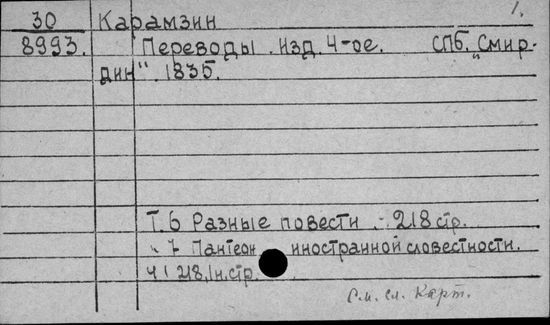 30 Карамзин 1.
8993. Переводы. Изд. 4-ое. СПб. "Смир-
дин". 1835.
Т. 6 Разные повести. - 218 стр.
" 7 Пантеон иностранной словестности.
Ч 1 218, 1 н. стр.
См. сл. карт.